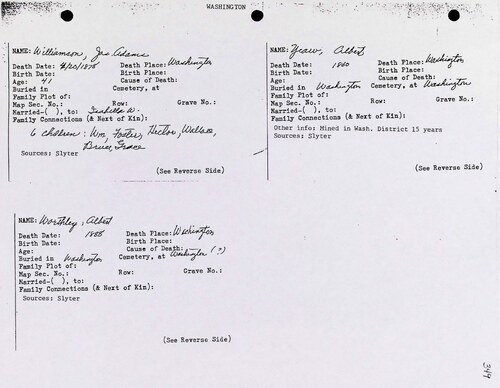 WASHINGTON
NAME: Williamson, Jno Adams
Death Date: 4/20/1878 Death Place: Washington
Birth Date: Birth Place:
Age: 41 Cause of Death:
Buried in Cemetery, at
Family Plot of:
Map Sec. No.: Row: Grave No.:
Married-( ), to: Isabella W.
Family Connections (& Next of Kin):
6 children: Wm, Foster, Hector, Wallace,
Bruce, Grace
Sources: Slyter
(See Reverse Side)
NAME: Yeaw, Albert
Death Date: 1860 Death Place: Washington
Birth Date: Birth Place:
Age: Cause of Death:
Buried in Washington Cemetery, at Washington
Family Plot of:
Map Sec. No.: Row: Grave No.:
Married-( ), to:
Family Connections (& Next of Kin):
Other info: Mined in Wash. District 15 years
Sources: Slyter
(See Reverse Side)
NAME: Worthley, Albert
Death Date: 1888 Death Place: Washington
Birth Date: Birth Place:
Age: Cause of Death:
Buried in Washington Cemetery, at Washington (?)
Family Plot of:
Map Sec. No.: Row: Grave No.:
Married-( ), to:
Family Connections (& Next of Kin):
Sources: Slyter
(See Reverse Side)
344